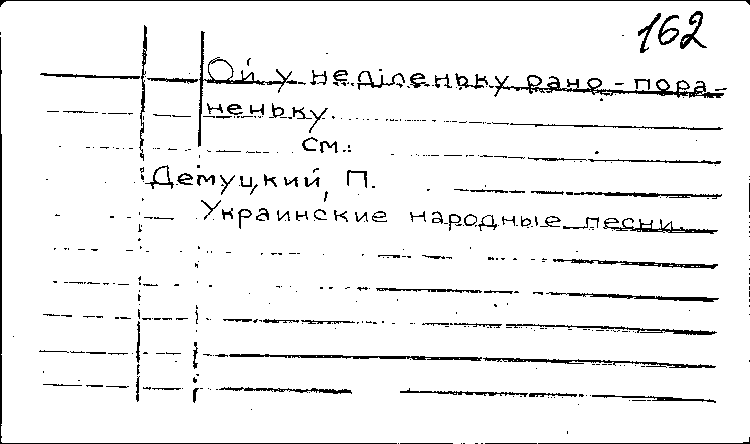 162
Ой у неділеньку рано-пора-
неньку.
см.:
Демуцкий, П.
Украинские народные песни.